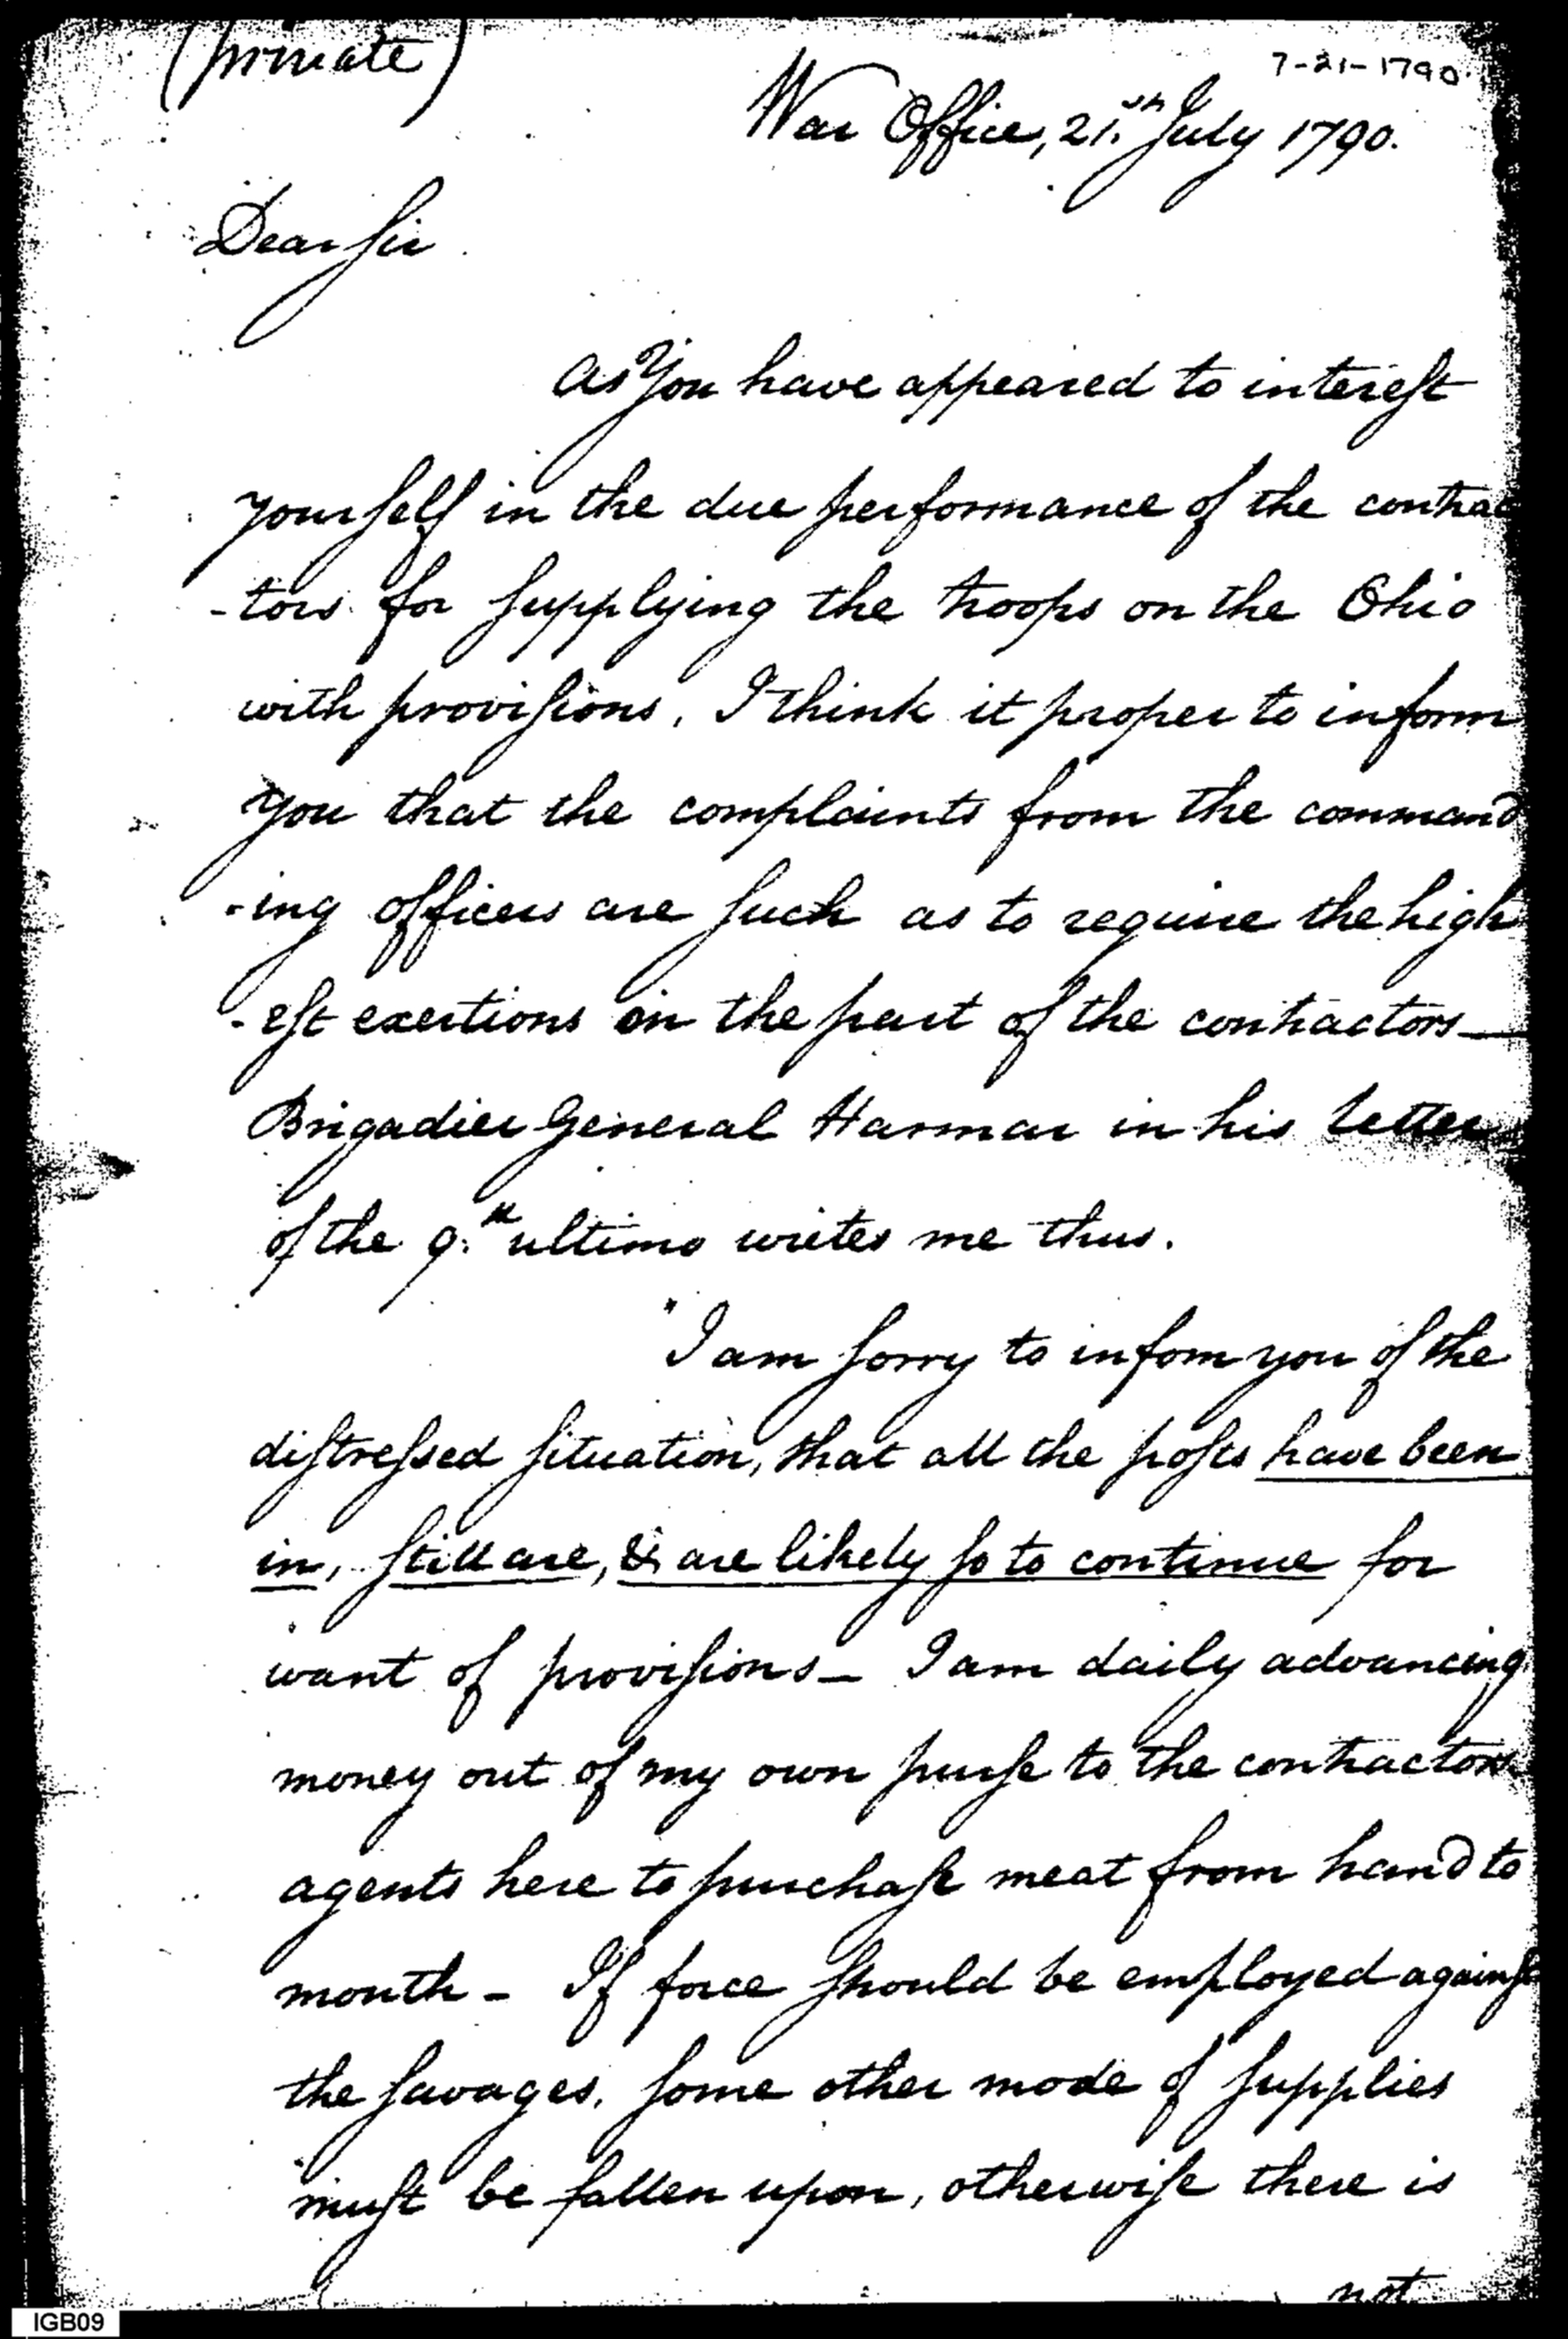 (private)
7-21-1790
War Office, 21st July 1790.
Dear Sir
As You have appeared to interest
yourself in the due performance of the contrac
-tors for supplying the troops on the Ohio
with provisions, I think it proper to inform
You that the complaints from the command
-ing officers are such as to require the high
-est exertions on the part of the contractors—
Brigadier General Harmar in his letter
of the 9th ultimo writes me thus.
"I am sorry to infom you of the
distressed situation, that all the posts have been
in, still are, & are likely so to continue for
want of provisions— I am daily advancing
money out of my own purse to the contractors
agents here to purchase meat from hand to
mouth - If force should be employed against
the savages, some other mode of supplies
must be fallen upon, otherwise there is
not
IGB09